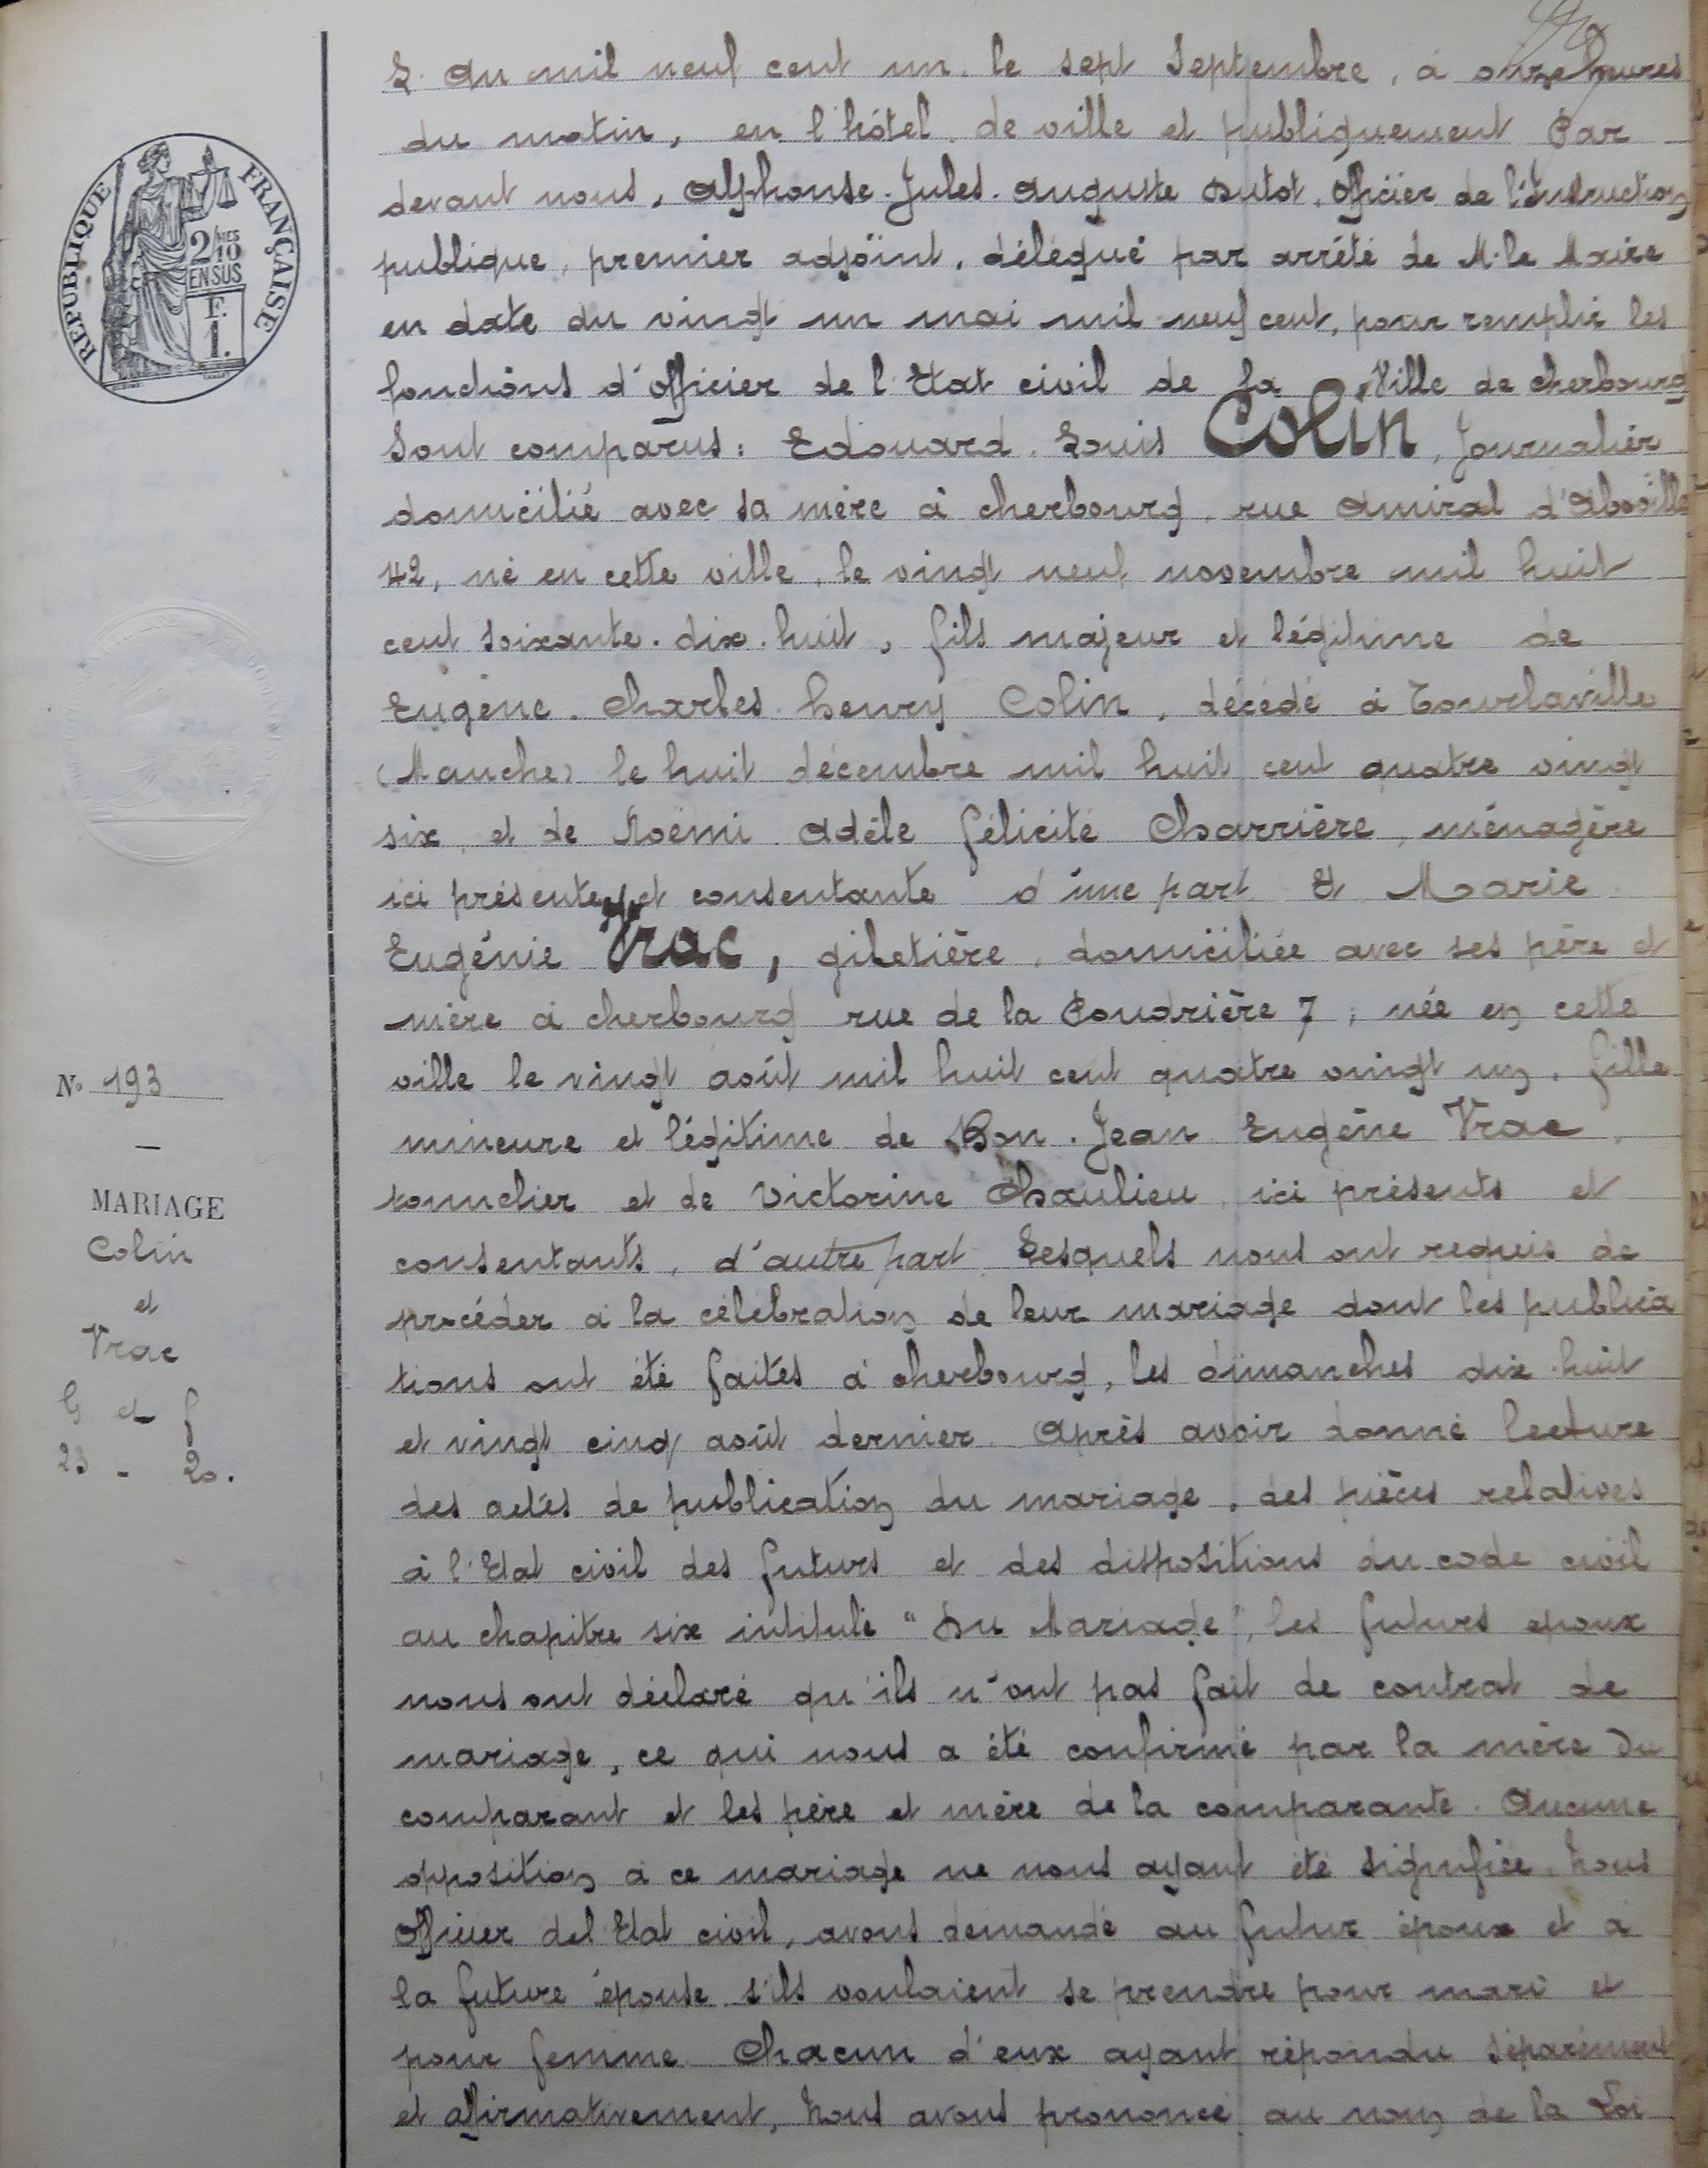 RÉPUBLIQUE FRANÇAISE
2/10 MES
EN SUS
F.
1.
N° 193
—
MARIAGE
Colin
et
Vrac
G et f
23 - 20.
L. An mil neuf cent un. le sept Septembre, à onze heures
du matin, en l'hôtel de ville et publiquement Par
devant nous, Alphonse. Jules. Auguste Dutot, officier de l'Instruction
publique, premier adjoint, délégué par arrêté de M. le Maire
en date du vingt un mai mil neuf cent, pour remplir les
fonctions d'officier de l'Etat civil de la Ville de cherbourg
Sont comparus: Edouard. Louis Colin, Journalier
domicilié avec sa mère à cherbourg, rue Amiral d'Aboville
42, né en cette ville, le vingt neuf novembre mil huit
cent soixante. dix. huit, fils majeur et légitime de
Eugène. Charles henry Colin, décédé à Tourlaville
(Manche) le huit décembre mil huit cent quatre vingt
six, et de Noémi Adèle félicité Charrière, ménagère
ici présente, et consentante d'une part Et Marie
Eugénie Vrac, giletière, domiciliée avec ses père et
mère à cherbourg rue de la Poudrière 7, née en cette
ville le vingt août mil huit cent quatre vingt un, fille
mineure et légitime de Bon. Jean Eugène Vrac,
tonnelier et de Victorine Chaulieu, ici présents et
consentants, d'autre part Lesquels nous ont requis de
procéder à la célébration de leur mariage dont les publica
tions ont été faites à cherbourg, les dimanches dix huit
et vingt cinq août dernier. Après avoir donné lecture
des actes de publication du mariage, des pièces relatives
à l'Etat civil des futurs et des dispositions du code civil
au chapitre six intitulé "Du Mariage", les futurs époux
nous ont déclaré qu'ils n'ont pas fait de contrat de
mariage, ce qui nous a été confirmé par la mère du
comparant et les père et mère de la comparante. Aucune
opposition à ce mariage ne nous ayant été signifiée, Nous
Officier de l'Etat civil, avons demandé au futur époux et à
la future épouse s'ils voulaient se prendre pour mari et
pour femme. Chacun d'eux ayant répondu séparément
et affirmativement, Nous avons prononcé au nom de la Loi